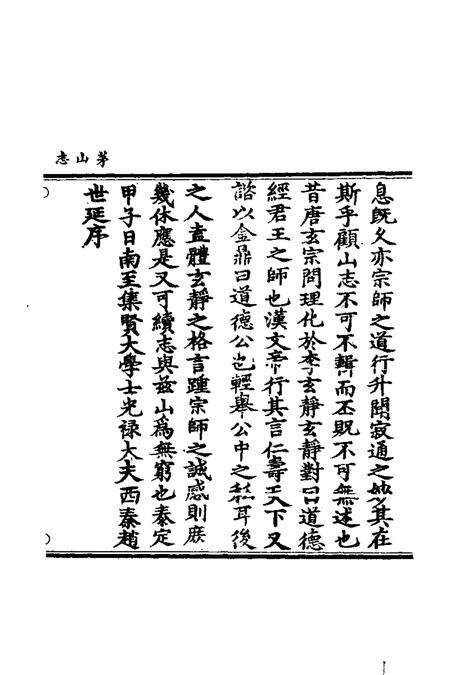 茅山志
息既久亦宗師之道行升聞寂通之妙其在
斯乎顧山志不可不輯而丕貺不可無述也
昔唐玄宗問理化於李玄靜玄靜對曰道德
經君王之師也漢文帝行其言仁壽天下又
諮以金鼎曰道德公也輕舉公中之私耳後
之人盍體玄靜之格言踵宗師之誠感則庶
幾休應是又可續志與兹山為無窮也泰定
甲子日南至集賢大學士光禄大夫西秦趙
世延序